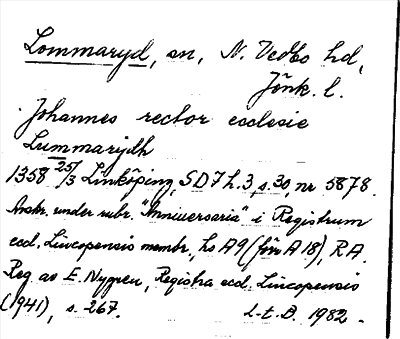 Lommaryd, sn, N. Vedbo hd,
Jönk. l.
Johannes rector ecclesie
Lummarydh
1358 25/3 Linköping, SD7 h.3, s.30, nr 5878.
Anskr. under rubr. "Anniversaria" i Registrum
eccl. Lincopensis membr., hs A9 (förr A18), RA.
Reg av E. Nygren, Registra eccl. Lincopensis
(1941), s. 267. L-t.D. 1982.